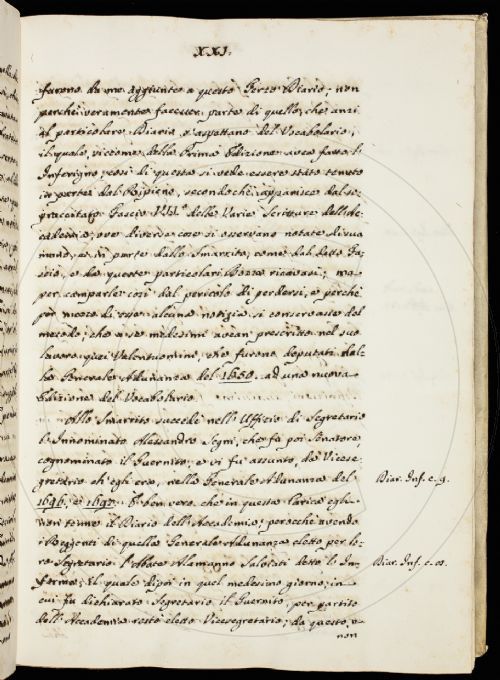 XXI.
furono da me aggiunte a questo Terzo Diario; non
perchè veramente faccian parte di quello, che anzi
al particolare Diario s'aspettano del Vocabolario;
il quale, siccome della Prima Edizione avea fatto l'
Inferigno; così di questa si vede essere stato tenuto
in parte dal Ripieno, secondochè apparisce dal so-
praccitato Fascio della Varie Scritture dell'Ac-
cademia; ove diverse cose si osservano notate di sua
mano, e in parte dallo Smarrito; come dal detto Fa-
scio, e da queste particolari Bozze ricavasi; ma
per camparle così dal pericolo di perdersi, e perchè
per mezzo di esse alcuna notizia si conservasse del
metodo, che a se medesimi avean prescritto nel suo
lavoro quei Valentuomini, che furono deputati dal-
la Generale Adunanza del 1650. ad una nuova
Edizione del Vocabolario.
Allo Smarrito succedè nell'Uffizio di Segretario
l'Innominato Alessandro Segni, che fu poi Senatore,
cognominato il Guernito; e vi fu assunto, da Vicese-
gretario ch'egli era, nella Generale Adunanza del
1696, e 1697. È ben vero che in questa Carica egli
non tenne il Diario dell'Accademia; perocchè avendo
i Reggenti di quella Generale Adunanza eletto per lo-
ro Segretario l'Abate Alamanno Salviati detto l'In-
fermo; Il quale dipoi in quel medesimo giorno, in
cui fu dichiarato Segretario il Guernito, per partito
dell'Accademia restò eletto Vicesegretario; da questo, e
non
Diar. Inf. c. 9.
Diar. Inf. c.